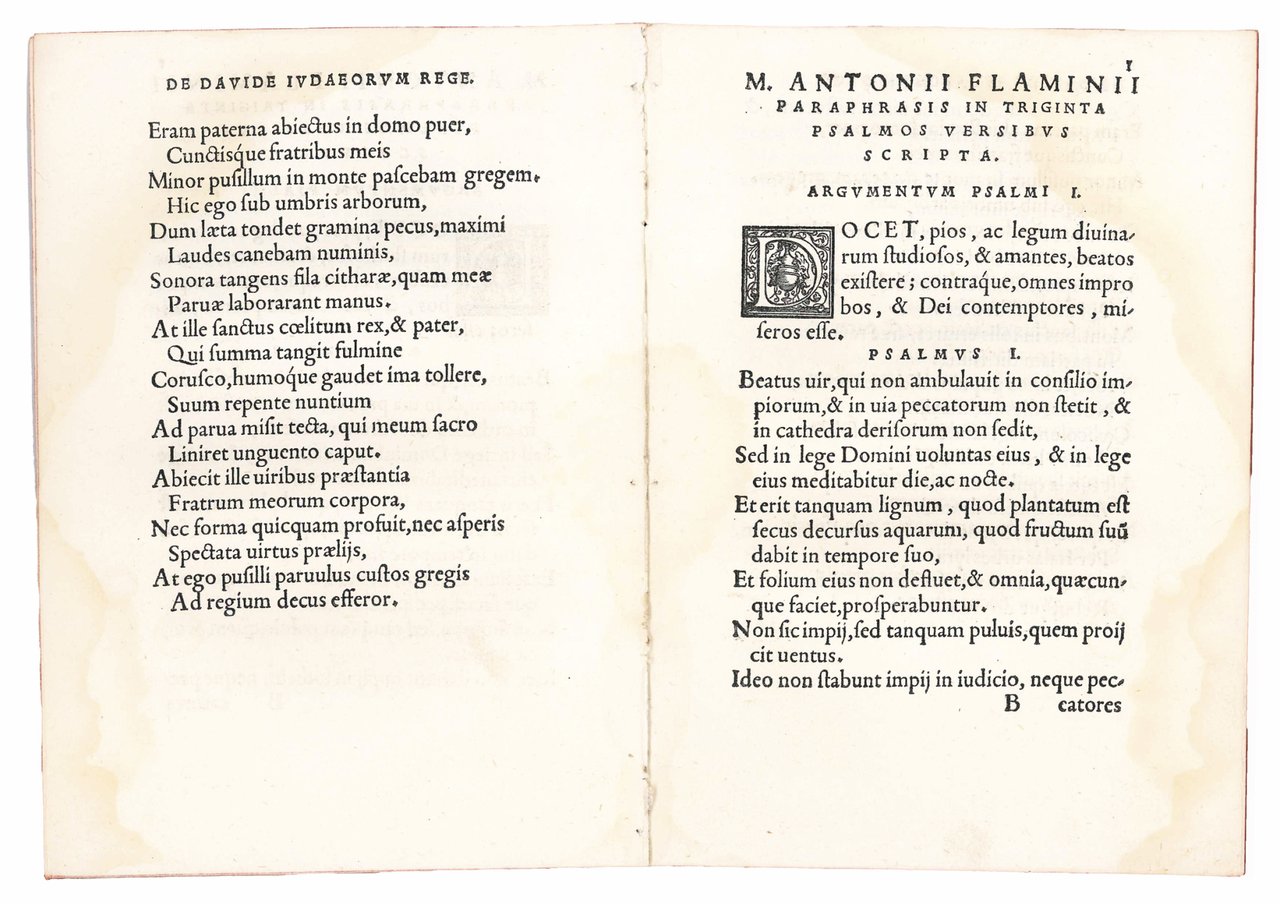 DE DAVIDE IVDAEORVM REGE.
Eram paterna abiectus in domo puer,
Cunctisq́ue fratribus meis
Minor pusillum in monte pascebam gregem.
Hic ego sub umbris arborum,
Dum læta tondet gramina pecus, maximi
Laudes canebam numinis,
Sonora tangens fila citharæ, quam meæ
Paruæ laborarant manus.
At ille sanctus cœlitum rex, & pater,
Qui summa tangit fulmine
Corusco, humoq́ue gaudet ima tollere,
Suum repente nuntium
Ad parua misit tecta, qui meum sacro
Liniret unguento caput.
Abiecit ille uiribus præstantia
Fratrum meorum corpora,
Nec forma quicquam profuit, nec asperis
Spectata uirtus prælijs,
At ego pusilli paruulus custos gregis
Ad regium decus efferor.
1
M. ANTONII FLAMINII
PARAPHRASIS IN TRIGINTA
PSALMOS VERSIBVS
SCRIPTA.
ARGVMENTVM PSALMI I.
DOCET, pios, ac legum diuina-
rum studiosos, & amantes, beatos
existere; contraq́ue, omnes impro
bos, & Dei contemptores, mi-
seros esse.
PSALMVS I.
Beatus uir, qui non ambulauit in consilio im-
piorum, & in uia peccatorum non stetit, &
in cathedra derisorum non sedit,
Sed in lege Domini uoluntas eius, & in lege
eius meditabitur die, ac nocte.
Et erit tanquam lignum, quod plantatum est
secus decursus aquarum, quod fructum suũ
dabit in tempore suo,
Et folium eius non defluet, & omnia, quæcun-
que faciet, prosperabuntur.
Non sic impij, sed tanquam puluis, quem proij
cit uentus.
Ideo non stabunt impij in iudicio, neque pec-
B catores